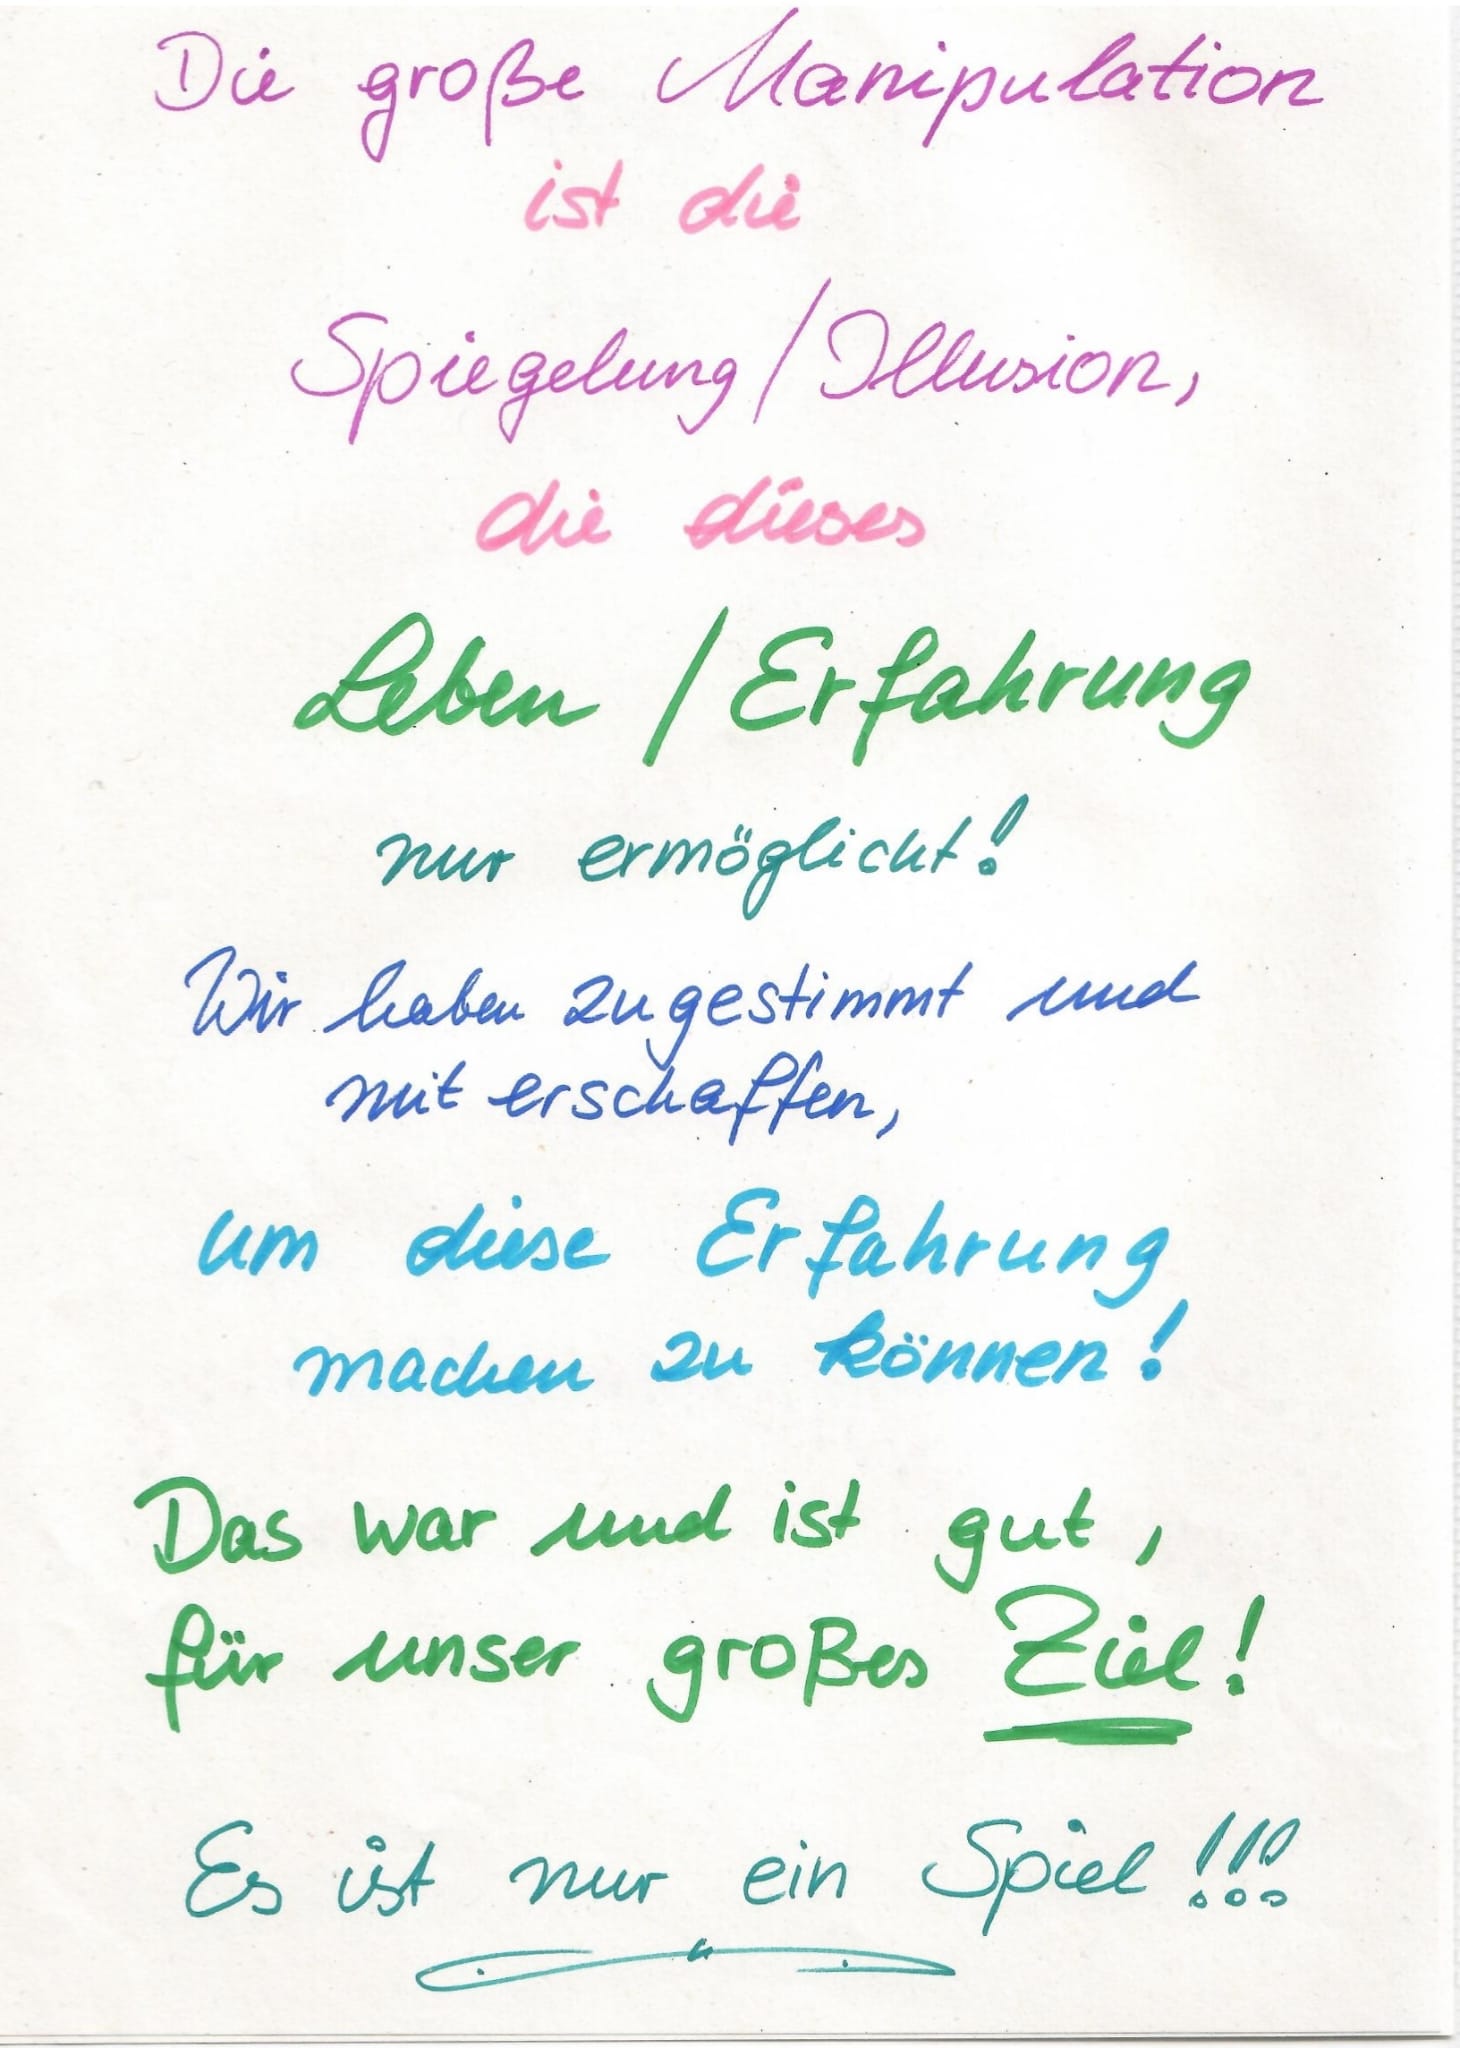 Die große Manipulation
ist die
Spiegelung / Illusion,
die dieses
Leben / Erfahrung
nur ermöglicht!
Wir haben zugestimmt und
mit erschaffen,
um diese Erfahrung
machen zu können!
Das war und ist gut,
für unser großes Ziel!
Es ist nur ein Spiel!!!